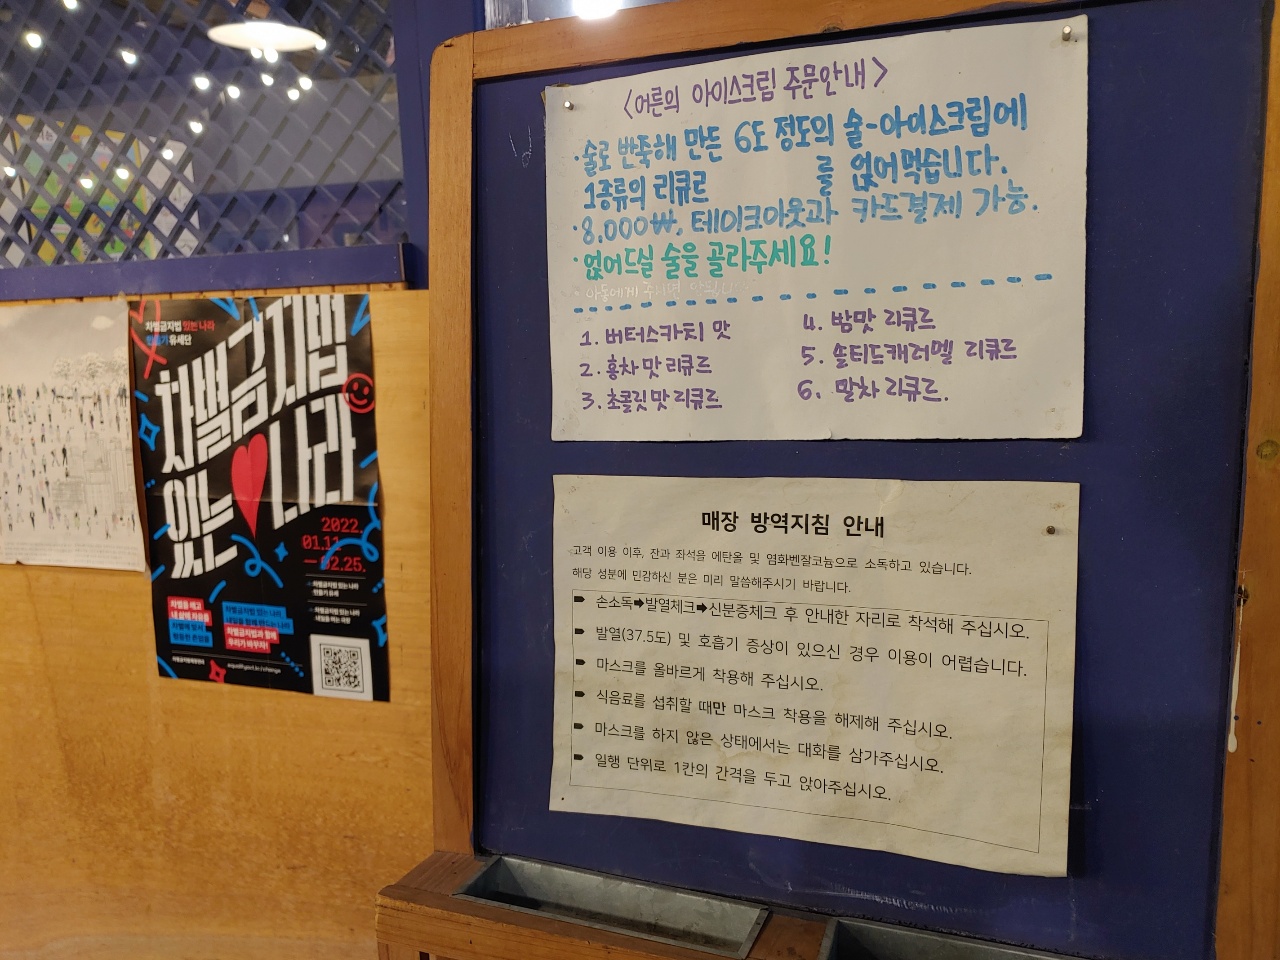 차별금지법 있는 나라
만들기 유세단
차별금지법
있는 나라
2022.
01.11
— 02.25.
차별금지법 있는 나라
만들기 유세
차별금지법 있는 나라
차별금지법 있는 나라
차별금지법과 함께
equalityact.kr/change
<어른의 아이스크림 주문안내>
·술로 반죽해 만든 6도 정도의 술-아이스크림에
1종류의 리큐르 를 얹어먹습니다.
·8,000₩, 테이크아웃과 카드결제 가능.
·얹어드실 술을 골라주세요!
1. 버터스카치 맛
2. 홍차 맛 리큐르
3. 초콜릿 맛 리큐르
4. 밤맛 리큐르
5. 솔티드캐러멜 리큐르
6. 말차 리큐르.
매장 방역지침 안내
고객 이용 이후, 잔과 좌석을 에탄올 및 염화벤잘코늄으로 소독하고 있습니다.
해당 성분에 민감하신 분은 미리 말씀해주시기 바랍니다.
손소독➡발열체크➡신분증체크 후 안내한 자리로 착석해 주십시오.
발열(37.5도) 및 호흡기 증상이 있으신 경우 이용이 어렵습니다.
마스크를 올바르게 착용해 주십시오.
식음료를 섭취할 때만 마스크 착용을 해제해 주십시오.
마스크를 하지 않은 상태에서는 대화를 삼가주십시오.
일행 단위로 1칸의 간격을 두고 앉아주십시오.